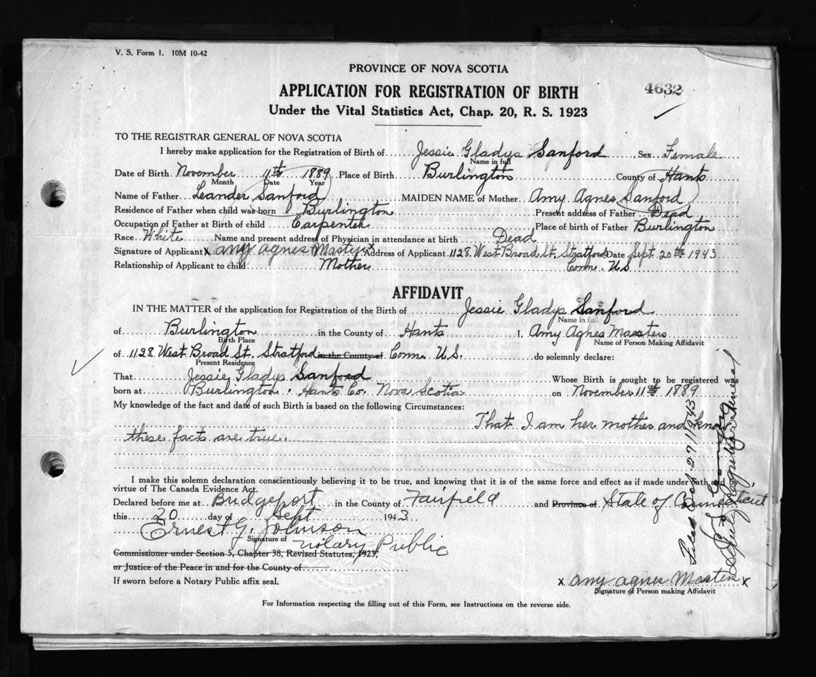 V. S. Form 1. 10M 10-42
PROVINCE OF NOVA SCOTIA
4632
APPLICATION FOR REGISTRATION OF BIRTH
Under the Vital Statistics Act, Chap. 20, R. S. 1923
TO THE REGISTRAR GENERAL OF NOVA SCOTIA
I hereby make application for the Registration of Birth of Jessie Gladys Sanford, Sex Female
Name in full
Date of Birth November 11th 1889 Place of Birth Burlington County of Hants
Month Date Year
Name of Father Leander Sanford MAIDEN NAME of Mother Amy Agnes Sanford
Residence of Father when child was born Burlington Present address of Father Dead
Occupation of Father at Birth of child Carpenter Place of birth of Father Burlington
Race White Name and present address of Physician in attendance at birth Dead
Signature of Applicant x Amy Agnes Masters x Address of Applicant 1128 West Broad St. Stratford Date Sept. 20th 1943
Relationship of Applicant to child Mother Conn. U.S.
AFFIDAVIT
IN THE MATTER of the application for Registration of the Birth of Jessie Gladys Sanford
Name in full
of Burlington in the County of Hants I, Amy Agnes Masters
Birth Place Name of Person Making Affidavit
of 1128 West Broad St. Stratford in the County of Conn. U.S. do solemnly declare:
Present Residence
That Jessie Gladys Sanford Whose Birth is sought to be registered was
born at Burlington, Hants Co. Nova Scotia on November 11th 1889
My knowledge of the fact and date of such Birth is based on the following Circumstances:
That I am her mother and know
these facts are true.
I make this solemn declaration conscientiously believing it to be true, and knowing that it is of the same force and effect as if made under oath and
virtue of The Canada Evidence Act.
Declared before me at Bridgeport in the County of Fairfield and Province of State of Connecticut
this 20 day of Sept 1943
Ernest G. Johnson
Signature of
Notary Public
Commissioner under Section 5, Chapter 38, Revised Statutes, 1923,
or Justice of the Peace in and for the County of
If sworn before a Notary Public affix seal.
x Amy Agnes Masters x
Signature of Person making Affidavit
For Information respecting the filling out of this Form, see Instructions on the reverse side.
Deputy Registrar General